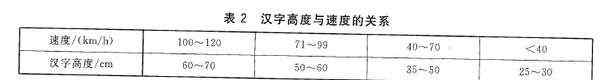 表 2 汉字高度与速度的关系
速度/(km/h) 100～120 71～99 40～70 <40
汉字高度/cm 60～70 50～60 35～50 25～30